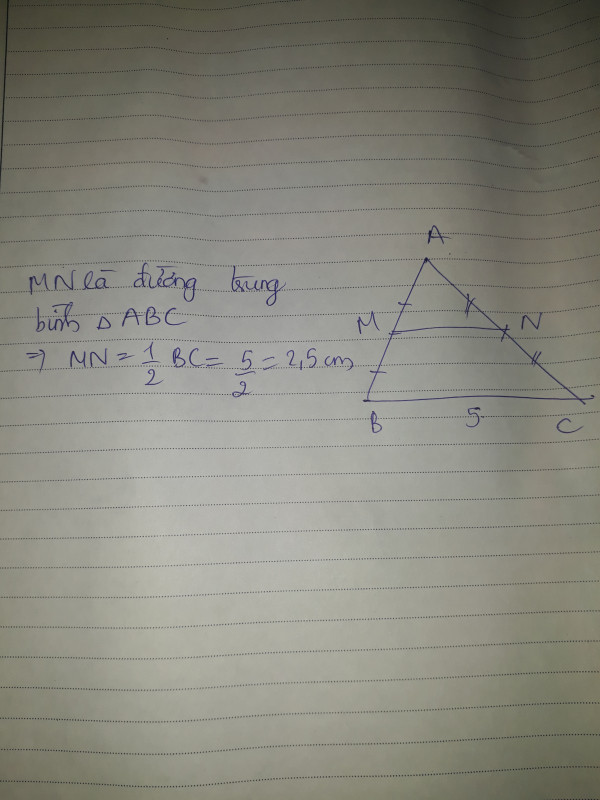 MN là đường trung
bình △ ABC
=> MN = 1/2 BC = 5/2 = 2,5 cm
A
M
N
B
5
C